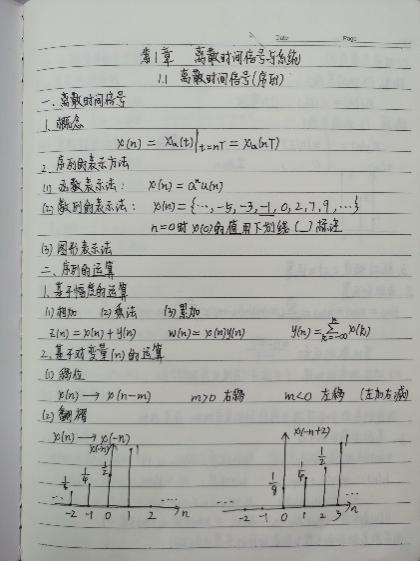 Date Page
第1章 离散时间信号与系统
1.1 离散时间信号(序列)
一、离散时间信号
1. 概念
x(n) = xa(t)|t=nT = xa(nT)
2. 序列的表示方法
(1) 函数表示法: x(n) = aⁿu(n)
(2) 数列的表示法: x(n) = {…, -5, -3, -1, 0, 2, 7, 9, …}
n=0时 x(0)的值用下划线(_)标注
(3) 图形表示法
二、序列的运算
1. 基于幅度的运算
(1) 相加 (2) 乘法 (3) 累加
z(n) = x(n) + y(n) w(n) = x(n)y(n) y(n) = Σ k=-∞ n x(k)
2. 基于对变量(n)的运算
(1) 移位
x(n) → x(n-m) m>0 右移 m<0 左移 (左加右减)
(2) 翻褶
x(n) → x(-n)
x(-n) x(-n+2)
1/8 1/4 1/2 1 1/8 1/4 1/2 1
… … … …
-2 -1 0 1 2 n -2 -1 0 1 2 3 n